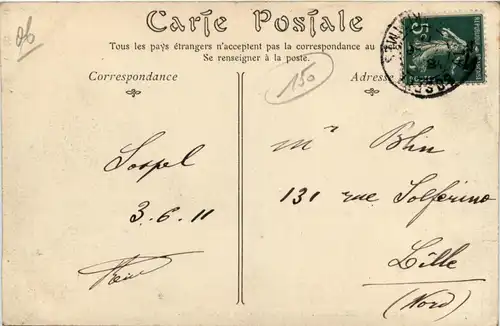 06
Carte Postale
Tous les pays étrangers n'acceptent pas la correspondance au
Se renseigner à la poste.
Correspondance
Adresse
150
5
Sospel
3.6.11
Mr Blin
131 rue Solférino
Lille
(Nord)